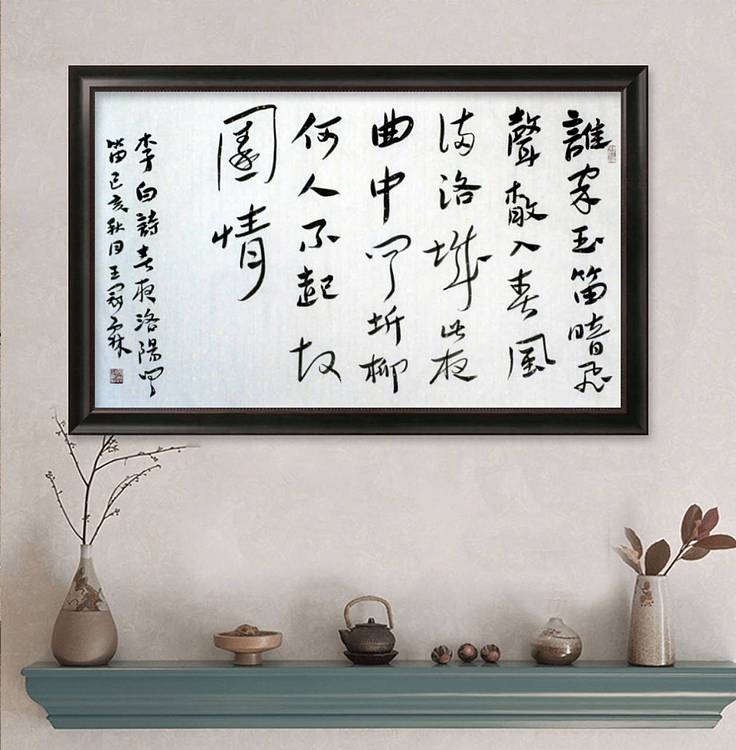 誰家玉笛暗飛
聲散入春風
满洛城此夜
曲中闻折柳
何人不起故
園情
李白詩春夜洛陽闻
笛己亥秋月王